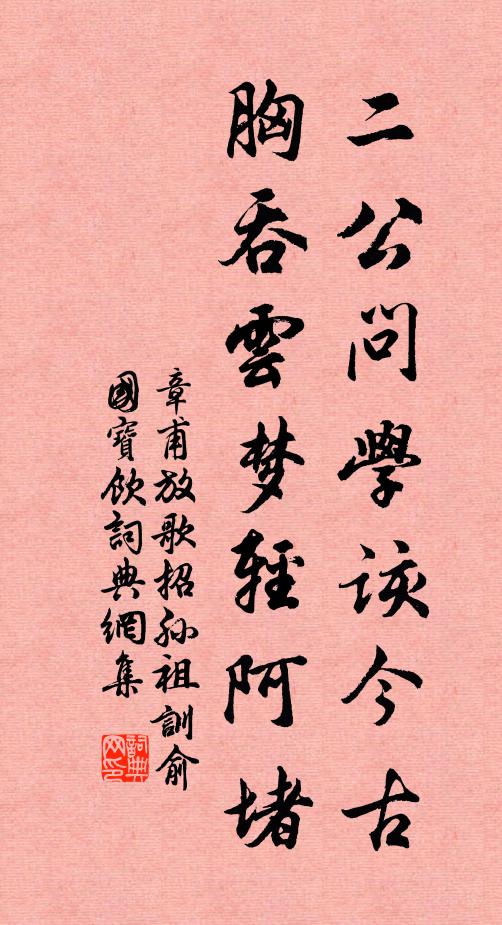 二公問學該今古
胸吞雲梦輕阿堵
章甫放歌招孙祖訓俞
國寶飲詞典網集
詞典网印